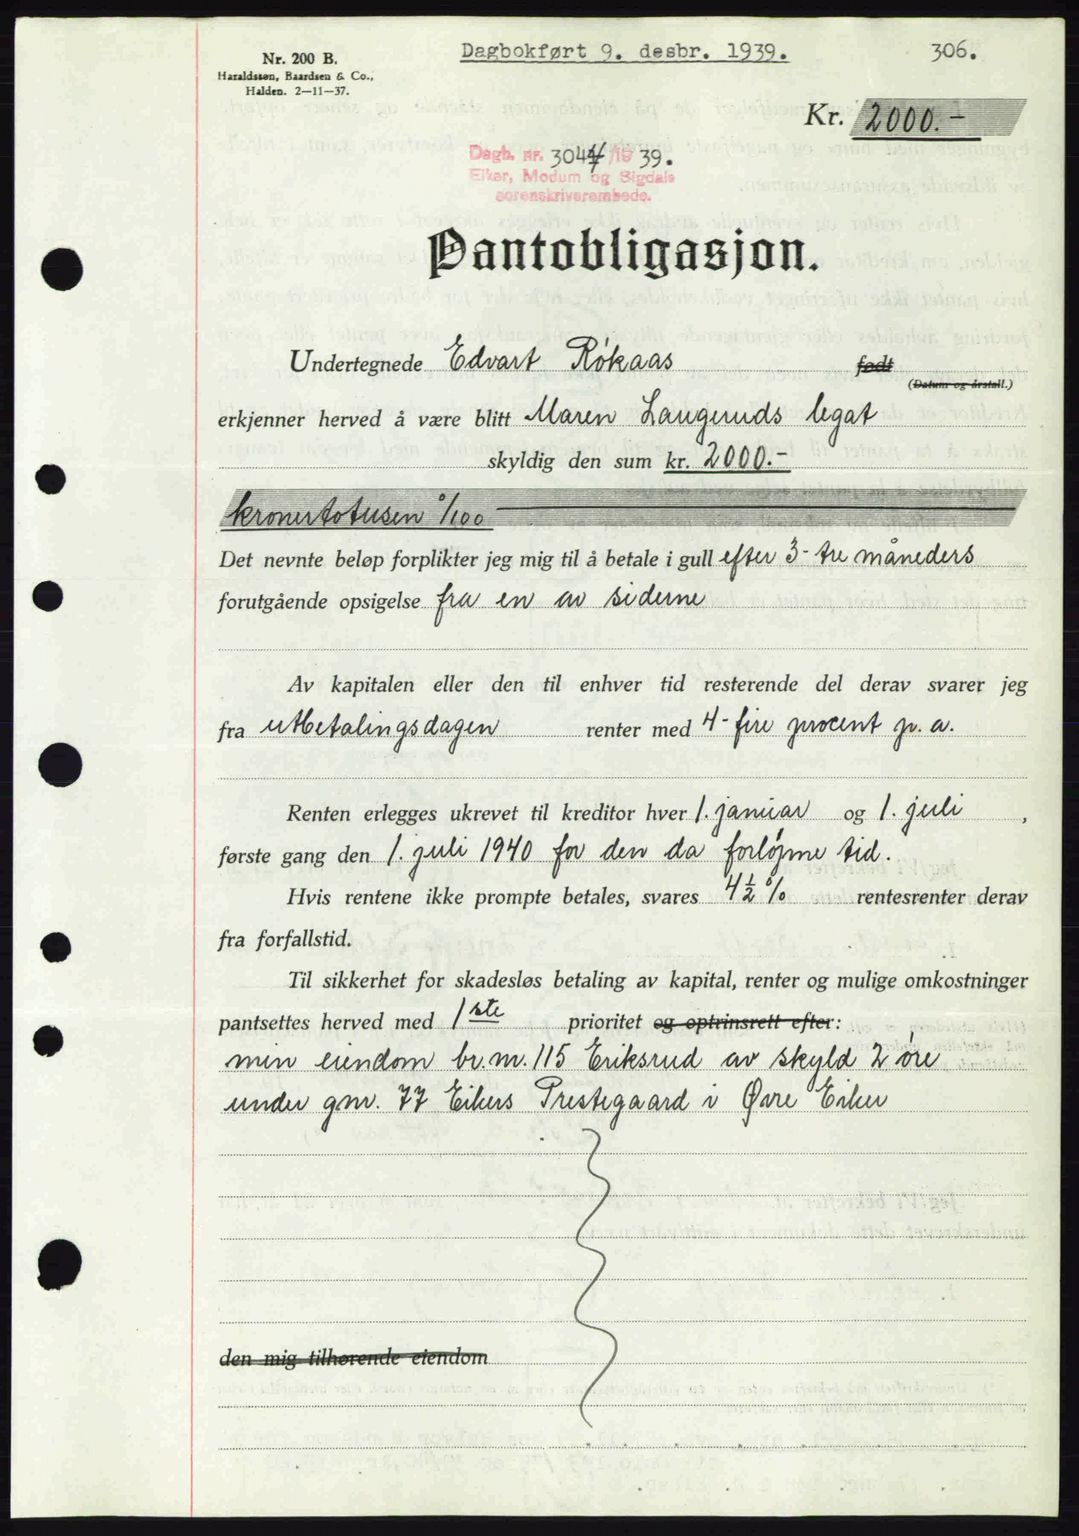 Dagbokført 9. desbr. 1939.
306.
Nr. 200 B.
Haraldssøn, Baardsen & Co.,
Halden. 2—11—37.
Kr. 2000.-
Dagb. nr. 3044/19 39.
Eiker, Modum og Sigdals
sorenskriverembede.
Pantobligasjon.
Undertegnede Edvart Røkaas født
(Datum og årstall.)
erkjenner herved å være blitt Maren Langeruds legat
skyldig den sum kr. 2000.-
kronertotusen 0/100
Det nevnte beløp forplikter jeg mig til å betale i gull efter 3- tre måneders
forutgående opsigelse fra en av siderne
Av kapitalen eller den til enhver tid resterende del derav svarer jeg
fra utbetalingsdagen renter med 4- fire procent p. a.
Renten erlegges ukrevet til kreditor hver 1. januar og 1. juli ,
første gang den 1. juli 1940 for den da forløpne tid.
Hvis rentene ikke prompte betales, svares 4½ % rentesrenter derav
fra forfallstid.
Til sikkerhet for skadesløs betaling av kapital, renter og mulige omkostninger
pantsettes herved med 1ste prioritet og optrinsrett efter:
min eiendom br. nr. 115 Eriksrud av skyld 2 øre
under gnr. 77 Eikers Prestegaard i Øvre Eiker
den mig tilhørende eiendom